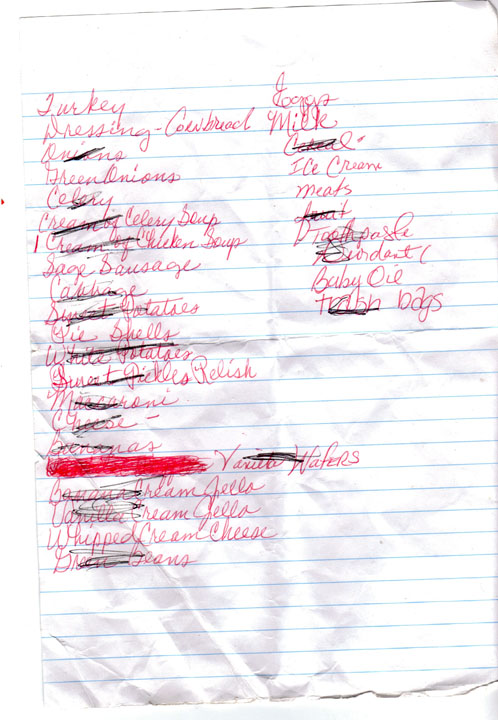 Turkey
Dressing - Cornbread
Onions
Green Onions
Celery
Cream of Celery Soup
1 Cream of Chicken Soup
Sage Sausage
Cabbage
Sweet Potatoes
Pie Shells
White Potatoes
Sweet Pickles Relish
Macaroni
Cheese -
Bananas
Vanilla Wafers
Banana Cream Jello
Vanilla Cream Jello
Whipped Cream Cheese
Green Beans
Eggs
Milk
Cereal -
Ice Cream
meats
fruit
Toothpaste
Baby Oil
Trash bags